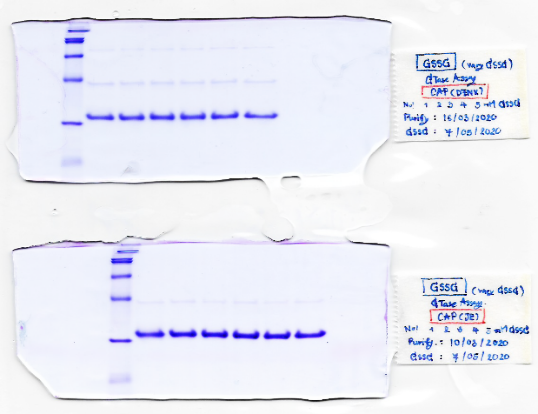 GSSG (vary dssd)
dTase Assay
CAP(DENV)
No! 1 2 3 4 5 mM dssd
Purify : 16/03/2020
dssd : 7/05/2020
GSSG (vary dssd)
dTase Assay.
CAP(JE)
No! 1 2 3 4 5 mM dssd
Purify. : 10/03/2020
dssd : 7/05/2020